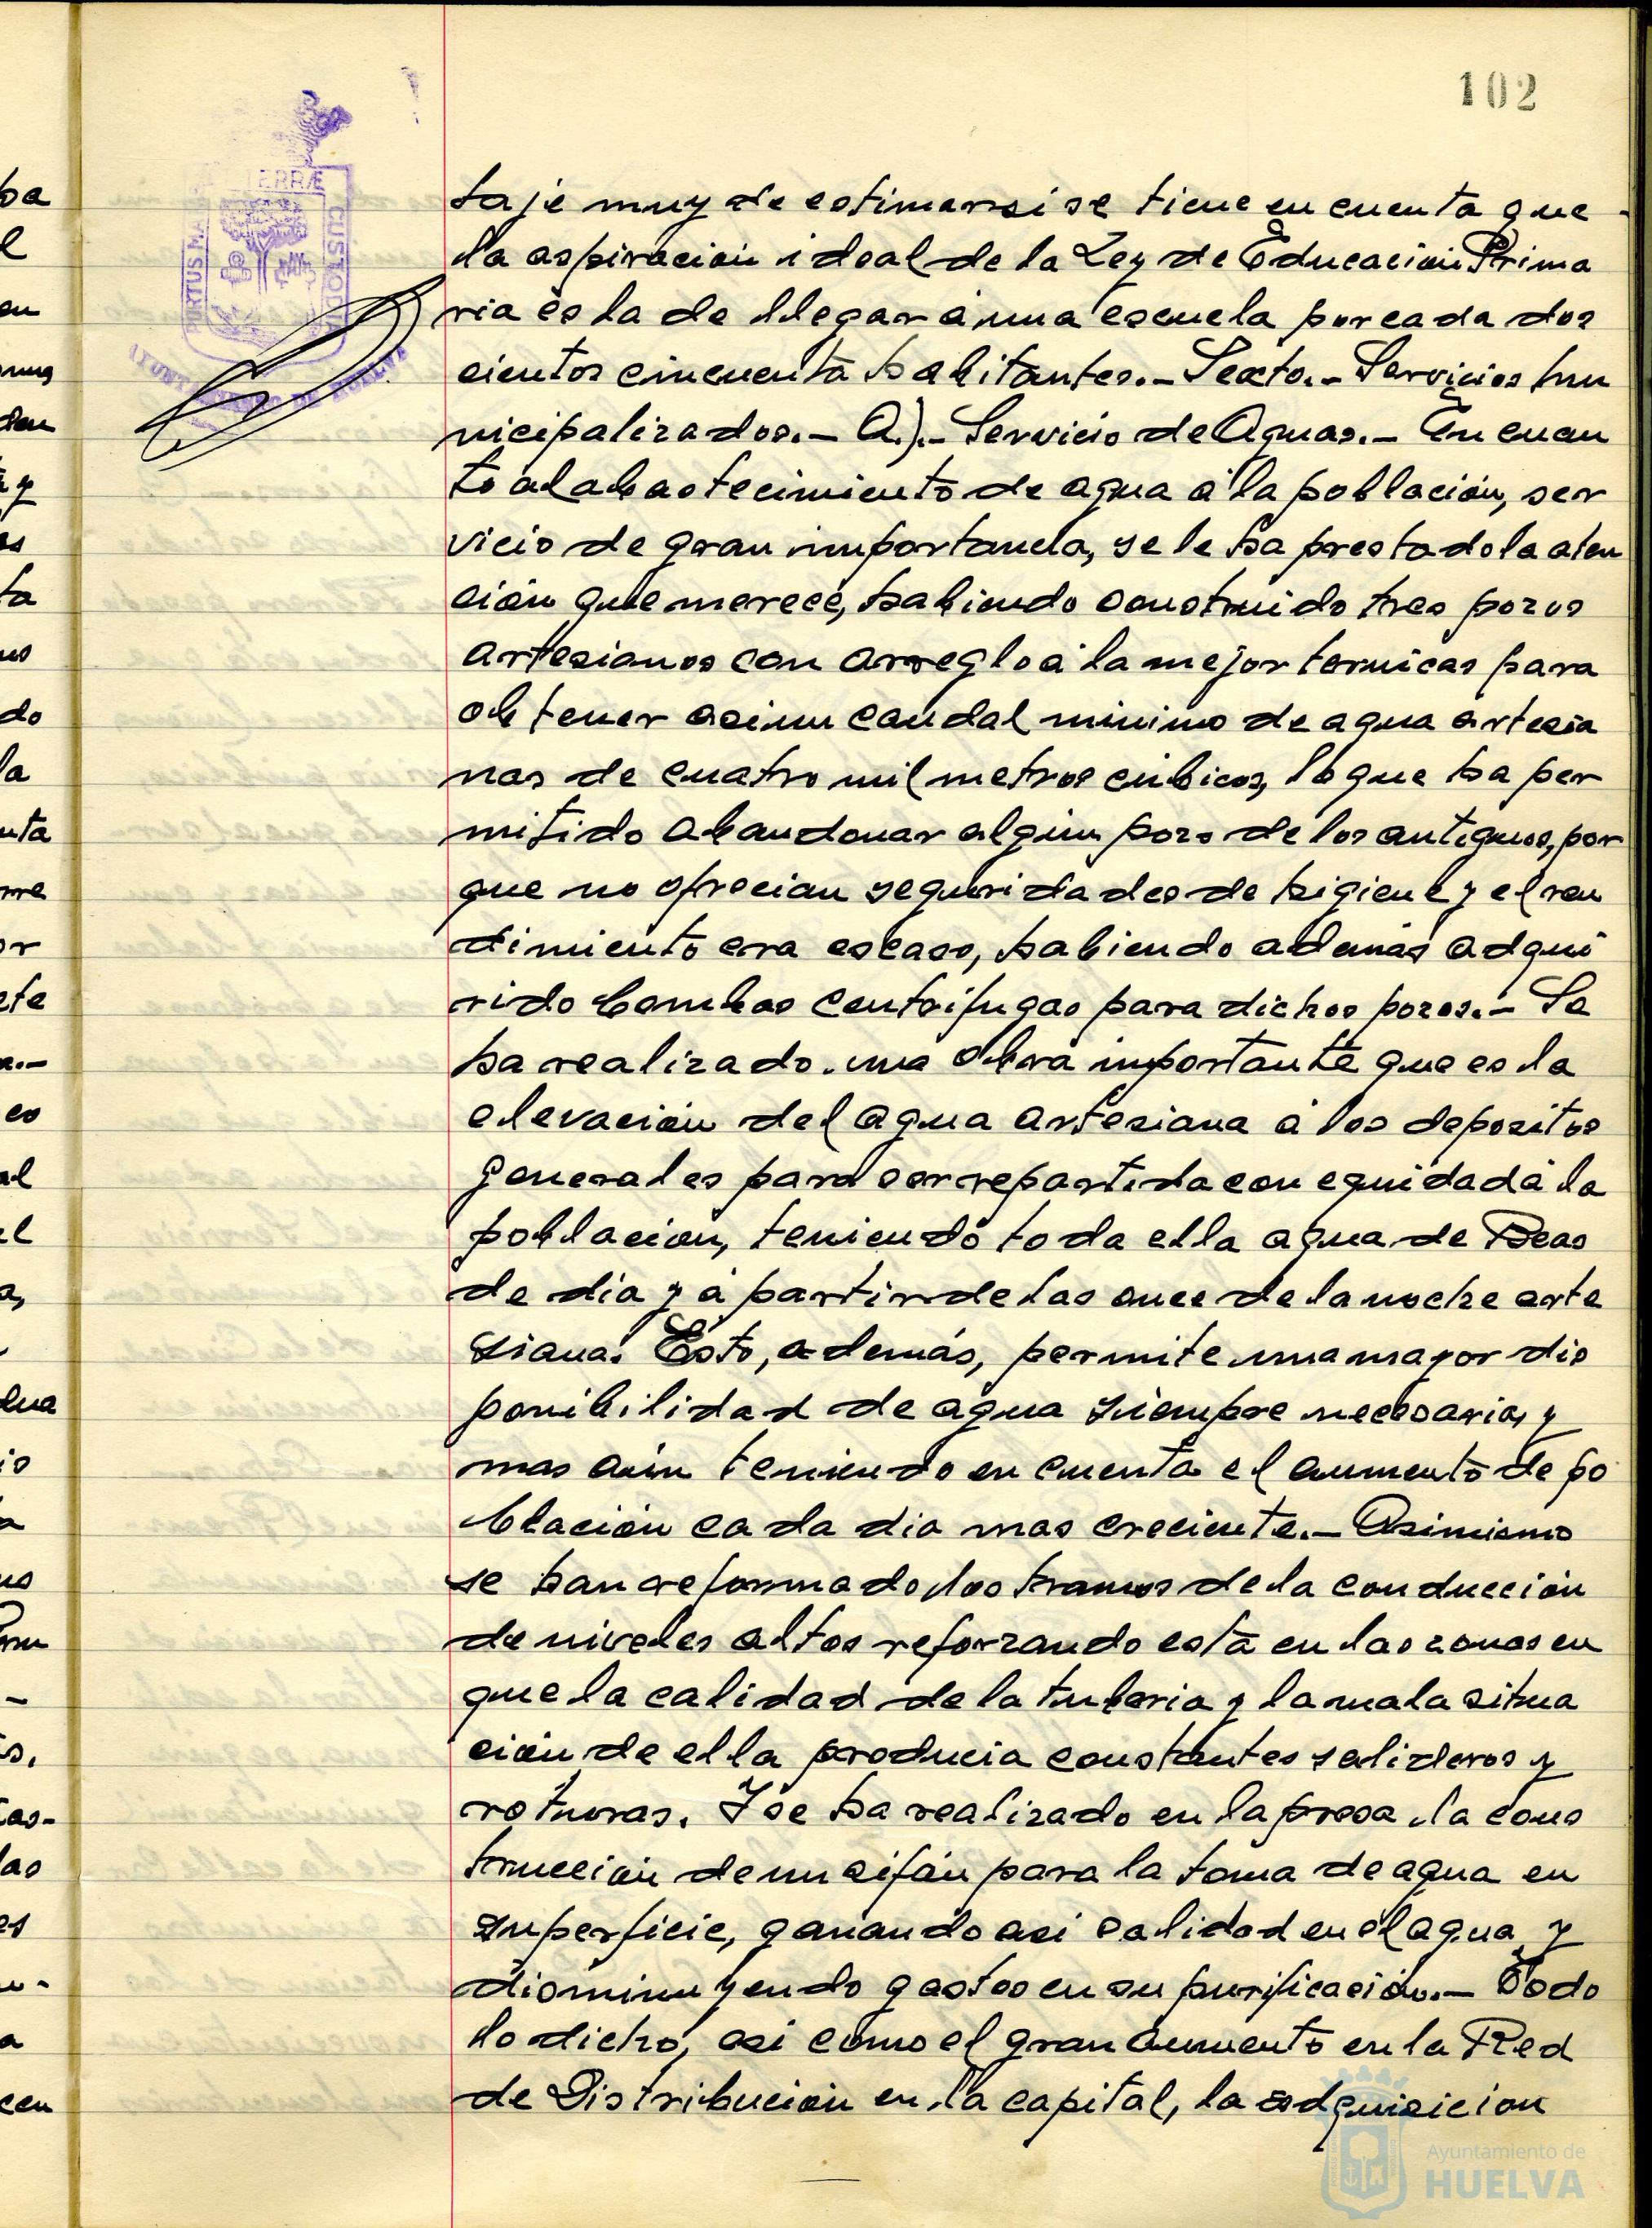 102
taje muy de estimar si se tiene en cuenta que
la aspiración ideal de la Ley de Educación Prima
ria es la de llegar á una escuela por cada dos
cientos cincuenta habitantes.- Sexto.- Servicios mu
nicipalizados.- A).- Servicio de Aguas.- En cuan
to al abastecimiento de agua á la población, ser
vicio de gran importancia, se le ha prestado la aten
ción que merece, habiendo construido tres pozos
artesianos con arreglo á la mejor tecnicas para
obtener asi un caudal minimo de agua artesia
nas de cuatro mil metros cúbicos, lo que ha per
mitido abandonar algún pozo de los antiguos, por
que no ofrecian seguridades de higiene y el ren
dimiento era escaso, habiendo además adqui
rido bombas centrifugas para dichos pozos.- Se
ha realizado una obra importante que es la
elevación del agua artesiana á los depositos
generales para ser repartida con equidad á la
población, teniendo toda ella agua de Beas
de dia y á partir de las once de la noche arte
siana. Esto, además, permite una mayor dis
ponibilidad de agua siempre necesaria, y
mas aún teniendo en cuenta el aumento de po
blación cada dia mas creciente.- Asimismo
se han reformado los tramos de la conducción
de niveles altos reforzando esta en las zonas en
que la calidad de la tuberia y la mala situa
ción de ella producia constantes salideros y
roturas. Y se ha realizado en la presa la cons
trucción de un sifón para la toma de agua en
superficie, ganando asi calidad en el agua y
disminuyendo gastos en su purificación.- Todo
lo dicho, asi como el gran aumento en la Red
de Distribución en la capital, la adquisicion
PORTUS MA TERRÆ CUSTODIA
AYUNTAMIENTO DE HUELVA
Ayuntamiento de
HUELVA